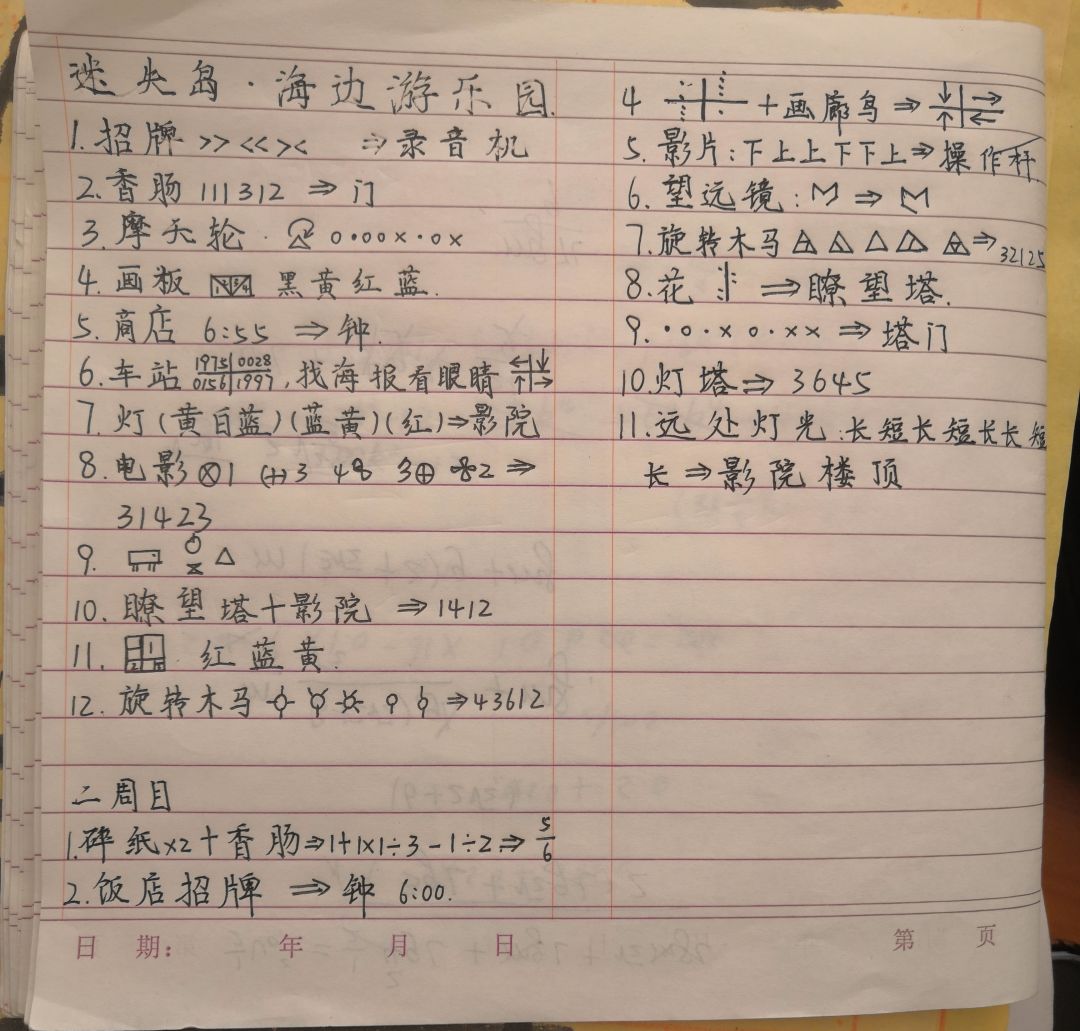 迷失岛·海边游乐园.
1.招牌 >> << >< ⇒录音机
2.香肠 111312 ⇒ 门
3.摩天轮. o·oo×·o×
4.画板 黑黄红蓝.
5.商店 6:55 ⇒钟.
6.车站 1975 0028 0156 1997, 找海报看眼睛
7.灯(黄白蓝)(蓝黄)(红)⇒影院
8.电影⊗1 3 4 3⊕ 2 ⇒
31423
9.
10.瞭望塔+影院 ⇒1412
11. 红蓝黄.
12.旋转木马 ⇒43612
二周目
1.碎纸×2+香肠⇒1+1×1÷3-1÷2⇒5/6
2.饭店招牌 ⇒钟 6:00.
日 期: 年 月 日
4 +画廊鸟⇒
5.影片:下上上下下上⇒操作杆
6.望远镜: ⇒
7.旋转木马 ⇒32125
8.花 ⇒瞭望塔.
9.·o·×o·××⇒塔门
10.灯塔⇒3645
11.远处灯光:长短长短长长短
长⇒影院楼顶
第 页